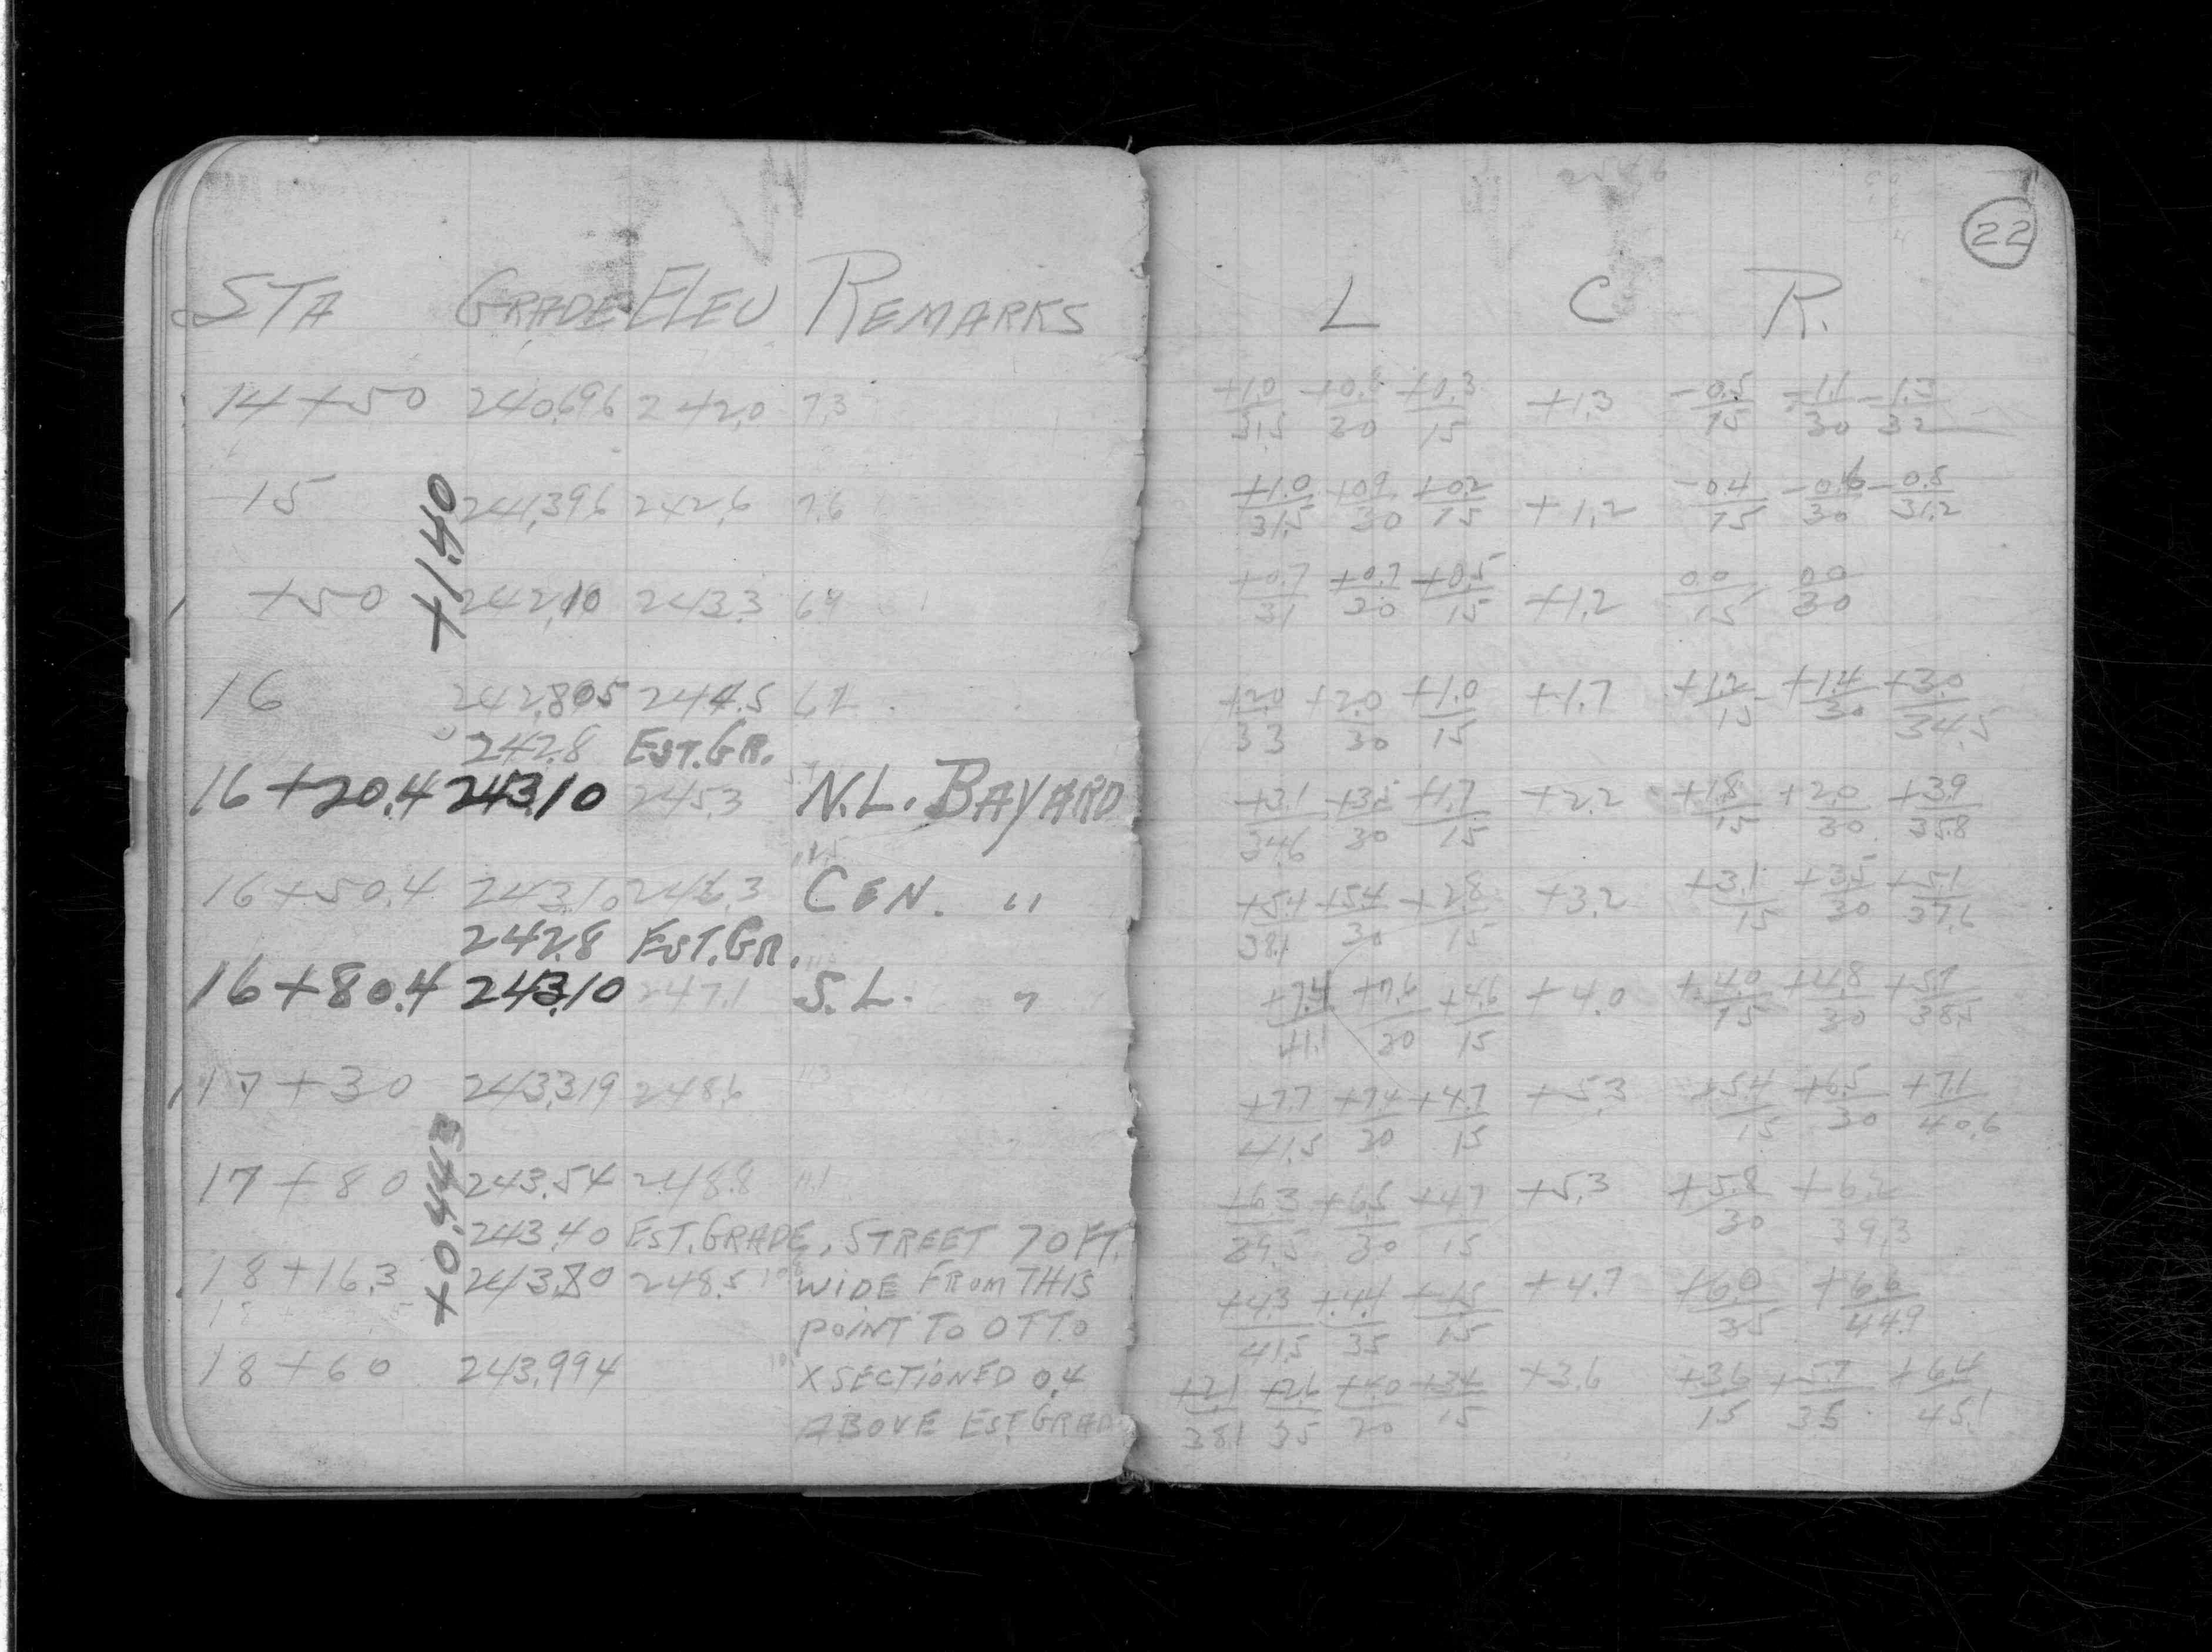 22
STA GRADE ELEV REMARKS L C R.
14+50 240.696 242.0 7.3 +1.0/31.5 +0.3/15 +1.3 -0.5/15 -1.1/30 -1.3/32
+1.40
15 241.396 242.6 7.6 +1.0/31.5 +0.9/30 +0.2/15 +1.2 -0.4/15 -0.6/30 -0.8/31.2
+50 242.10 243.3 6.9 +0.7/31 +0.7/30 +0.5/15 +1.2 0.0/15 0.0/30
16 242.805 244.5 +2.0/33 +2.0/30 +1.0/15 +1.7 +1.2/15 +1.4/30 +3.0/34.5
242.8 EST. GR.
16+20.4 243.10 245.3 N.L. BAYARD +3.1/34.6 /30 +1.7/15 +2.2 +1.8/15 +2.0/30 +3.9/35.8
16+50.4 243.10 246.3 CEN. " +5.4/38.1 +5.4/30 +2.8/15 +3.2 +3.1/15 +3.5/30 +5.1/37.6
242.8 EST. GR.
16+80.4 243.10 247.1 S.L. " +7.4/41.1 +7.6/30 +4.6/15 +4.0 +4.0/15 +4.8/30 +5.7/38.5
17+30 243.319 248.6 11.3 +7.7/41.5 +7.4/30 +4.7/15 +5.3 +5.4/15 +6.5/30 +7.1/40.6
+0.443
17+80 243.54 248.8 11.1 +6.3/39.5 +6.5/30 +4.7/15 +5.3 +5.8/30 +6.2/39.3
243.40 EST. GRADE, STREET 70 FT.
18+16.3 243.80 248.5 WIDE FROM THIS +4.3/41.5 +4.4/35 /15 +4.7 +6.0/35 +6.6/44.9
POINT TO OTTO
18+60 243.994 X SECTIONED 0.4 +2.1/38.1 +2.6/35 +4.0/20 +3.4/15 +3.6 +3.6/15 +5.7/35 +6.4/45.1
ABOVE EST. GRAD